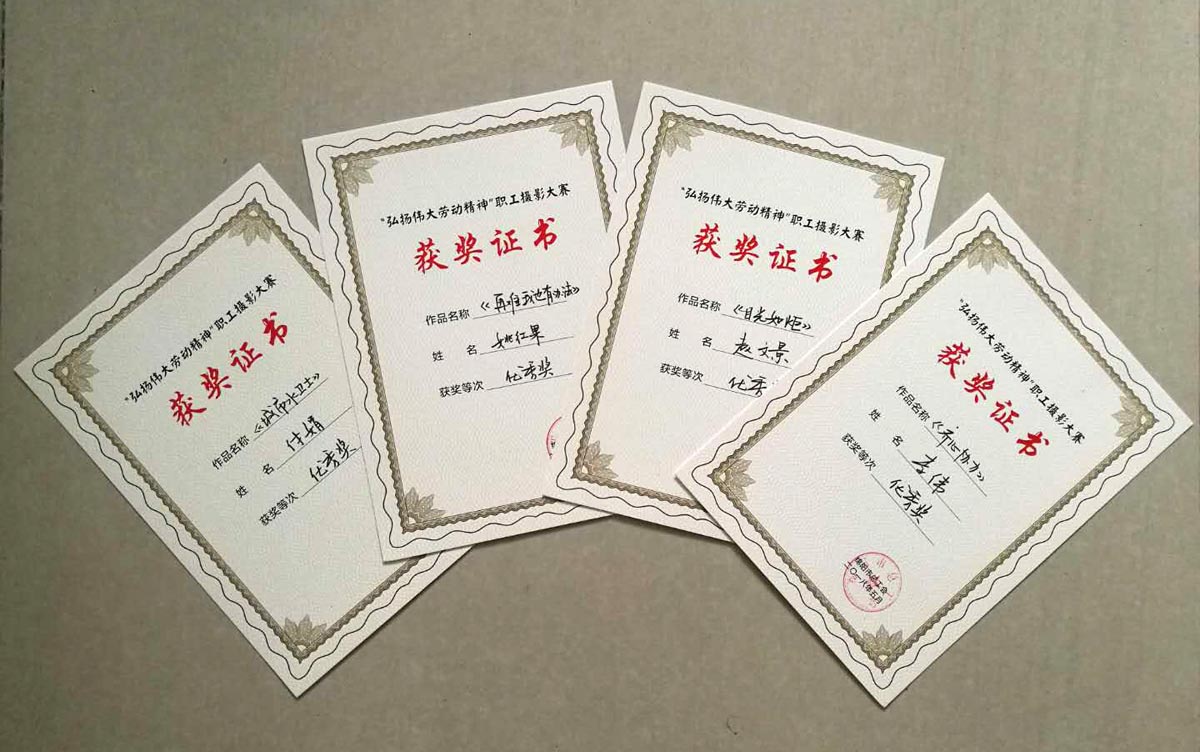 “弘扬伟大劳动精神”职工摄影大赛
获奖证书
作品名称《城市水卫士》
姓 名 付娟
获奖等次 优秀奖
“弘扬伟大劳动精神”职工摄影大赛
获奖证书
作品名称《再难我也有办法》
姓 名 姚红果
获奖等次 优秀奖
“弘扬伟大劳动精神”职工摄影大赛
获奖证书
作品名称《目光如炬》
姓 名 赵文景
获奖等次 优秀
“弘扬伟大劳动精神”职工摄影大赛
获奖证书
作品名称《齐心协力》
姓 名 李伟
获奖等次 优秀奖
市总工会
二〇一八年五月